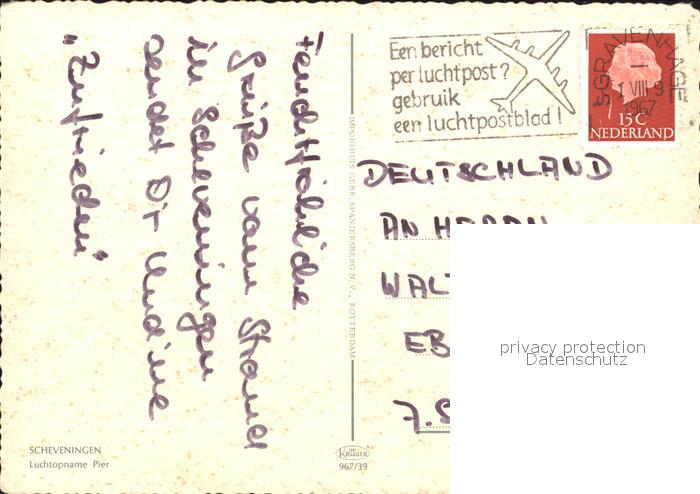 feuchtfröhliche
Grüße vom Strand
in Scheveningen
sendet Dir Undine
„Zufrieden"
SCHEVENINGEN
Luchtopname Pier
IMPORTHUIS GEBR. SPANJERSBERG N.V., ROTTERDAM
KRÜGER
967/39
Een bericht
per luchtpost?
gebruik
een luchtpostblad!
'S-GRAVENHAGE
VIII
1967
15 C
NEDERLAND
DEUTSCHLAND
AN HERRN
WAL
EB
7.
privacy protection
Datenschutz